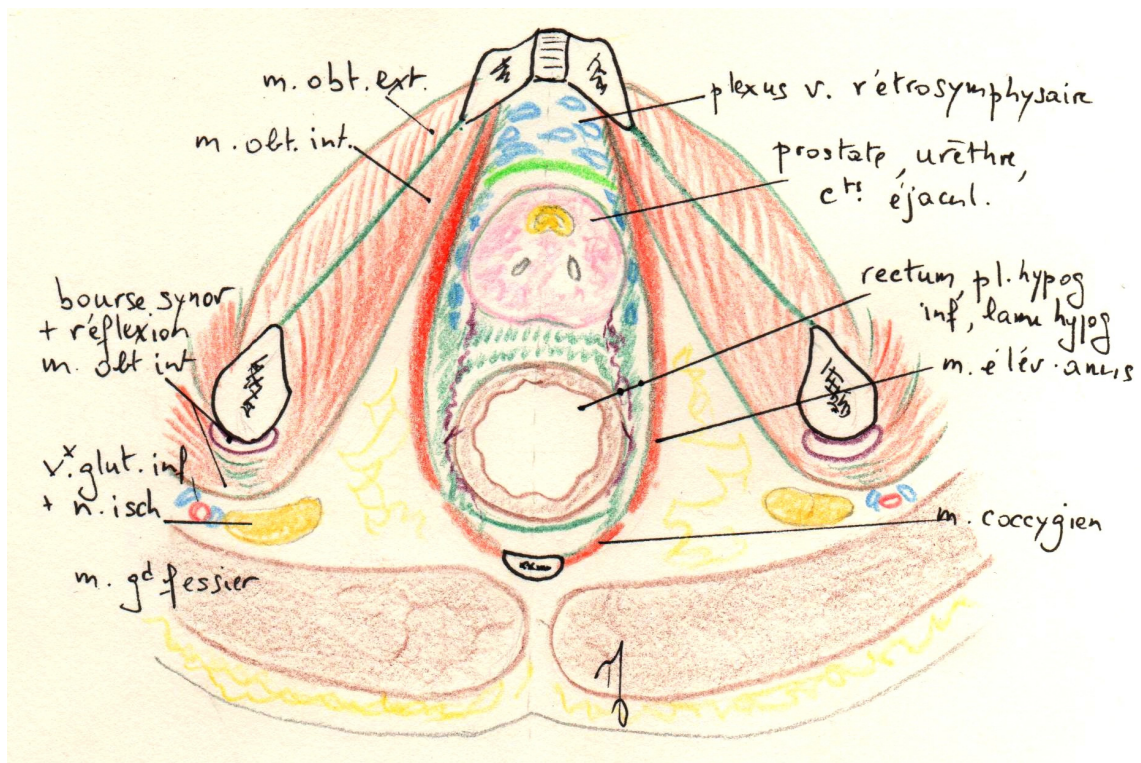 m. obt. ext.
m. obt. int.
bourse synov
+ réflexion
m. obt int
vx. glut. inf
+ n. isch
m. gd fessier
plexus v. rétrosymphysaire
prostate, urèthre,
cts. éjacul.
rectum, pl. hypog
inf, lame hypog
m. élév. anus
m. coccygien